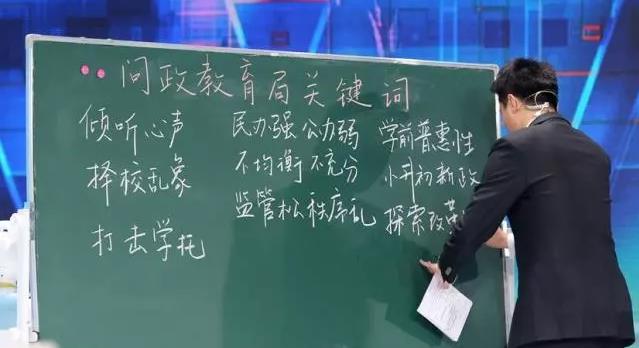 问政教育局关键词
倾听心声
择校乱象
打击学托
民办强 公办弱
不均衡 不充分
监管松 秩序乱
学前普惠性
小升初新政
探索改革